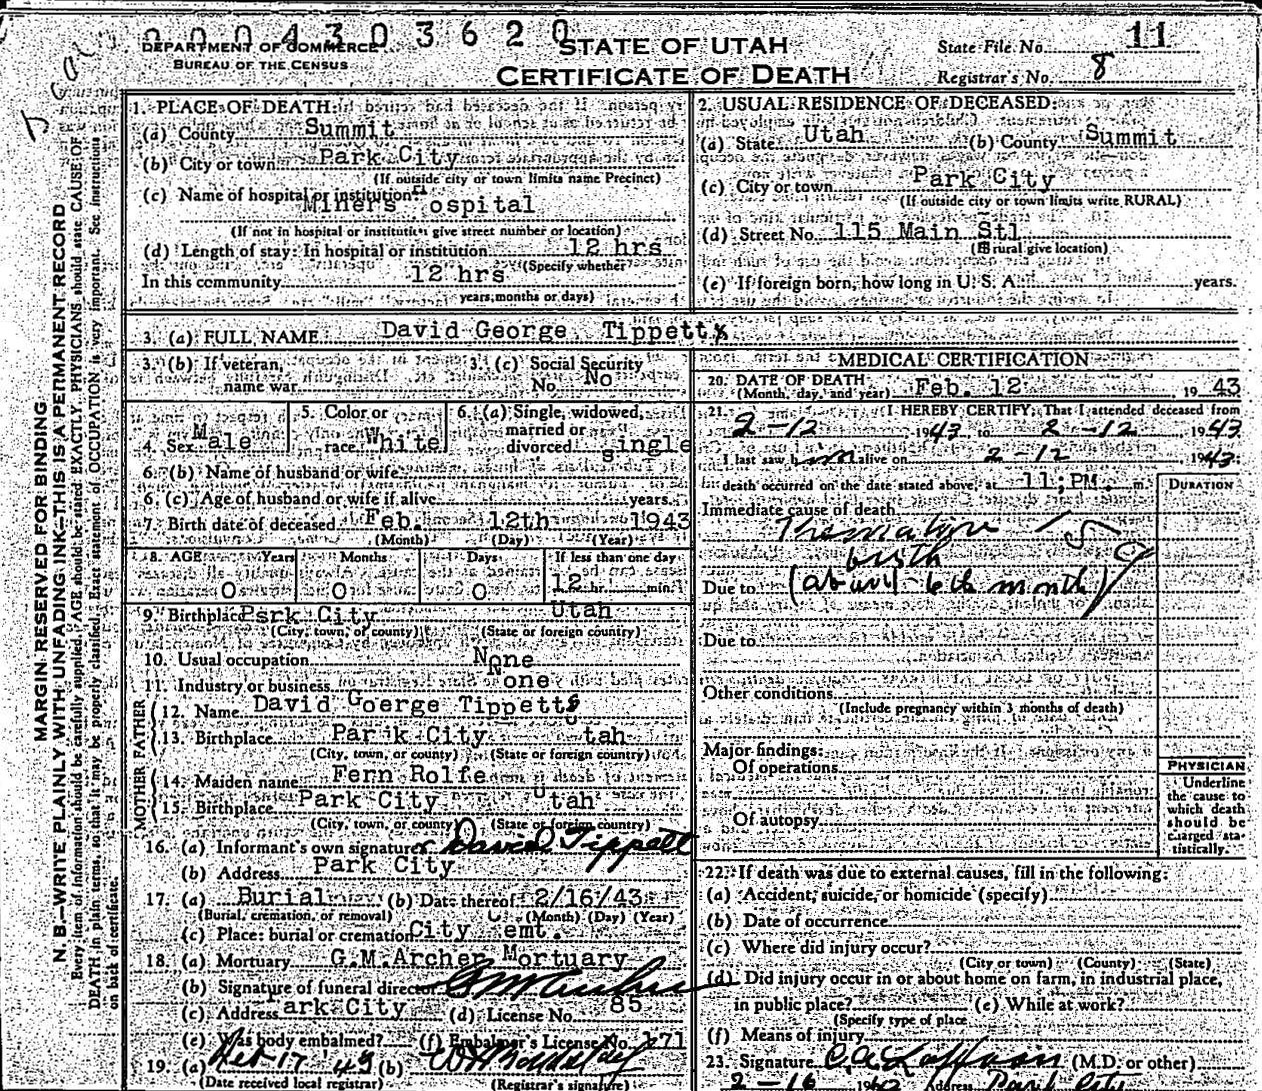 0004303620
DEPARTMENT OF COMMERCE
BUREAU OF THE CENSUS
STATE OF UTAH
CERTIFICATE OF DEATH
State File No. 11
Registrar's No. 8
MARGIN RESERVED FOR BINDING
N. B.—WRITE PLAINLY WITH UNFADING INK—THIS IS A PERMANENT RECORD
Every item of information should be carefully supplied. AGE should be stated EXACTLY. PHYSICIANS should state CAUSE OF
DEATH in plain terms, so that it may be properly classified. Exact statement of OCCUPATION is very important. See instructions
on back of certificate.
1. PLACE OF DEATH:
(a) County Summit
(b) City or town Park City
(If outside city or town limits name Precinct)
(c) Name of hospital or institution:
Miners Hospital
(If not in hospital or institution give street number or location)
(d) Length of stay: In hospital or institution 12 hrs
(Specify whether
In this community 12 hrs
years, months or days)
2. USUAL RESIDENCE OF DECEASED:
(a) State Utah (b) County Summit
(c) City or town Park City
(If outside city or town limits write RURAL)
(d) Street No. 115 Main Stl
(If rural give location)
(e) If foreign born, how long in U. S. A. years.
3. (a) FULL NAME David George Tippett
3. (b) If veteran,
name war
3. (c) Social Security
No. No
4. Sex Male
5. Color or
race White
6. (a) Single, widowed,
married or
divorced single
6. (b) Name of husband or wife
6. (c) Age of husband or wife if alive years
7. Birth date of deceased Feb. 12th 1943
(Month) (Day) (Year)
8. AGE Years Months Days If less than one day
0 0 0 12 hr. min.
9. Birthplace Psrk City Utah
(City, town, or county) (State or foreign country)
10. Usual occupation None
11. Industry or business None
FATHER
12. Name David Goerge Tippett
13. Birthplace Park City Utah
(City, town, or county) (State or foreign country)
MOTHER
14. Maiden name Fern Rolfe
15. Birthplace Park City Utah
(City, town, or county) (State or foreign country)
16. (a) Informant's own signature David Tippett
(b) Address Park City
17. (a) Burial (b) Date thereof 2/16/43
(Burial, cremation, or removal) (Month) (Day) (Year)
(c) Place: burial or cremation City Cemt.
18. (a) Mortuary G.M.Archer Mortuary
(b) Signature of funeral director
(c) Address Park City (d) License No. 85
(e) Was body embalmed? (f) Embalmer's License No. 271
19. (a) Feb 17 '43 (b)
(Date received local registrar) (Registrar's signature)
MEDICAL CERTIFICATION
20. DATE OF DEATH Feb. 12 19 43
(Month, day, and year)
21. I HEREBY CERTIFY, That I attended deceased from
2-12, 1943 to 2-12, 1943
I last saw him alive on 2-12 1943;
death occurred on the date stated above, at 11;PM. m.
DURATION
Immediate cause of death
Premature 159
birth
Due to (about 6th month)
Due to
Other conditions
(Include pregnancy within 3 months of death)
Major findings:
Of operations
Of autopsy
PHYSICIAN
Underline
the cause to
which death
should be
charged sta-
tistically.
22. If death was due to external causes, fill in the following:
(a) Accident, suicide, or homicide (specify)
(b) Date of occurrence
(c) Where did injury occur?
(City or town) (County) (State)
(d) Did injury occur in or about home on farm, in industrial place,
in public place? (e) While at work?
(Specify type of place
(f) Means of injury
23. Signature (M.D. or other)
2-16 Address Park City